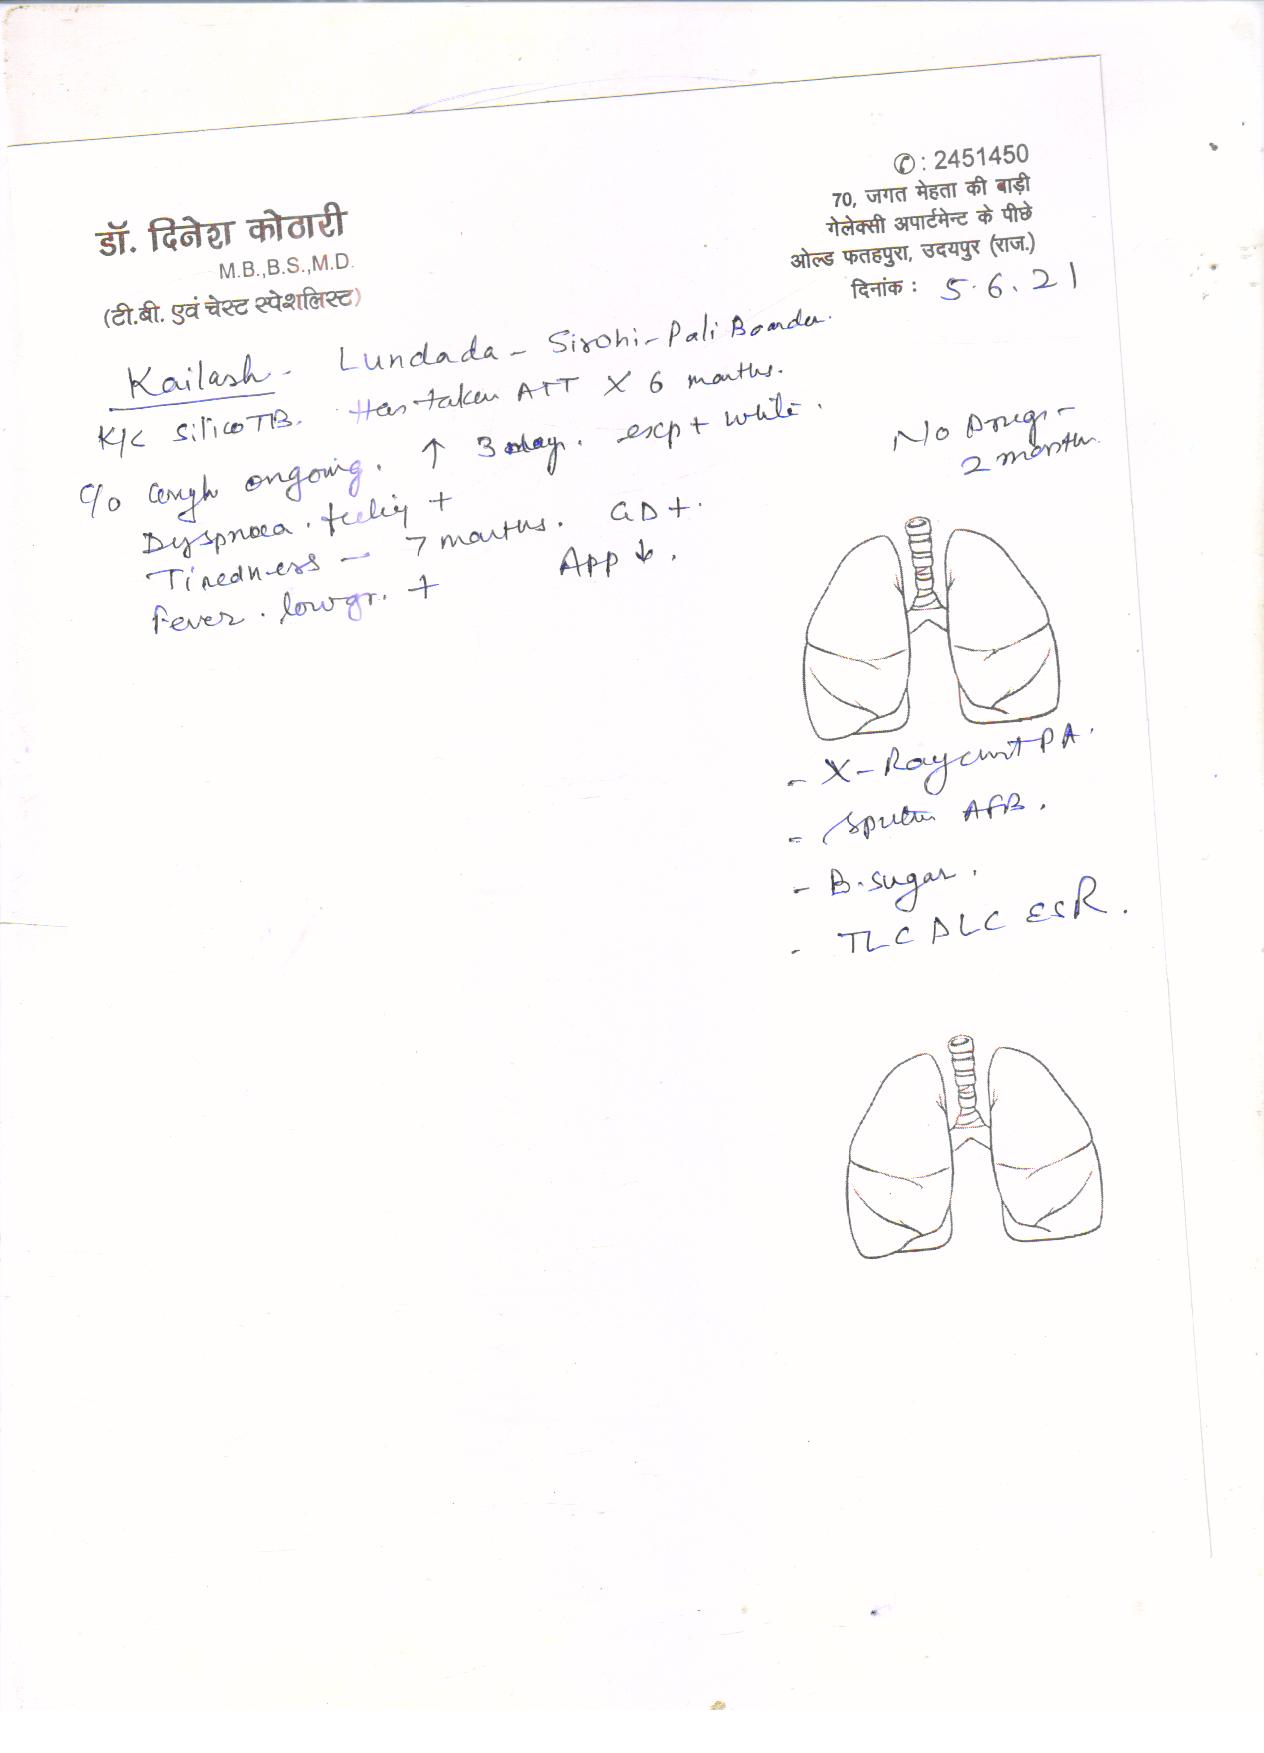 ✆: 2451450
70, जगत मेहता की बाड़ी
गेलेक्सी अपार्टमेन्ट के पीछे
ओल्ड फतहपुरा, उदयपुर (राज.)
दिनांक : 5.6.21
डॉ. दिनेश कोठारी
M.B.,B.S.,M.D.
(टी.बी. एवं चेस्ट स्पेशलिस्ट)
Kailash - Lundada - Sirohi - Pali Boarder.
K/C SilicoTB. Has taken ATT X 6 months.
No Drugs -
2 months.
C/o Cough ongoing. ↑ 3 day. exp + white.
Dyspnoea. +
Tiredness - 7 months. GD +.
Fever. low gr. + App ↓.
- X-Ray PA.
- Sputum AFB.
- B. sugar.
- TLC DLC ESR.